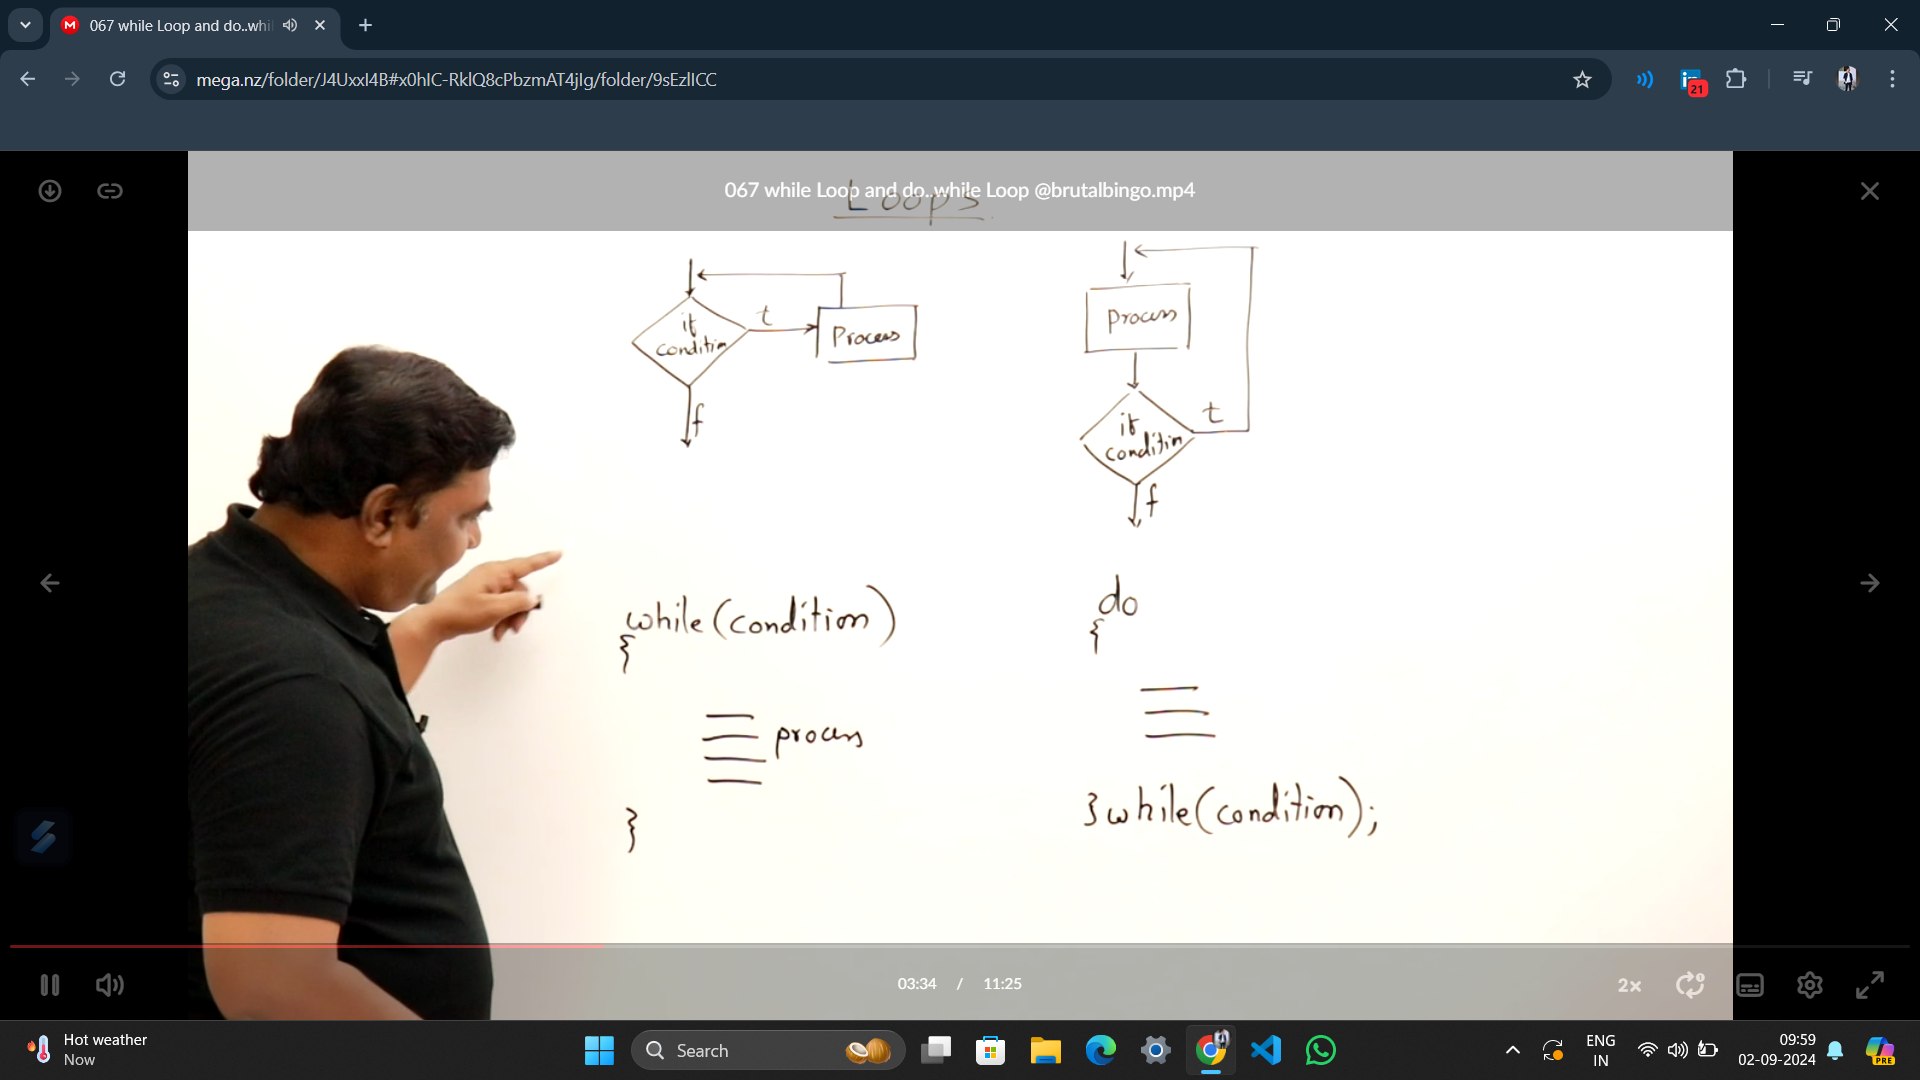 067 while Loop and do..whil
mega.nz/folder/J4UxxI4B#x0hIC-RklQ8cPbzmAT4jIg/folder/9sEzlICC
21
067 while Loop and do..while Loop @brutalbingo.mp4
Loops
if
condition
t
Process
f
Process
if
condition
t
f
while(condition)
{
process
}
do
{
}while(condition);
03:34 / 11:25
2x
Hot weather
Now
Search
ENG
IN
09:59
02-09-2024
PRE